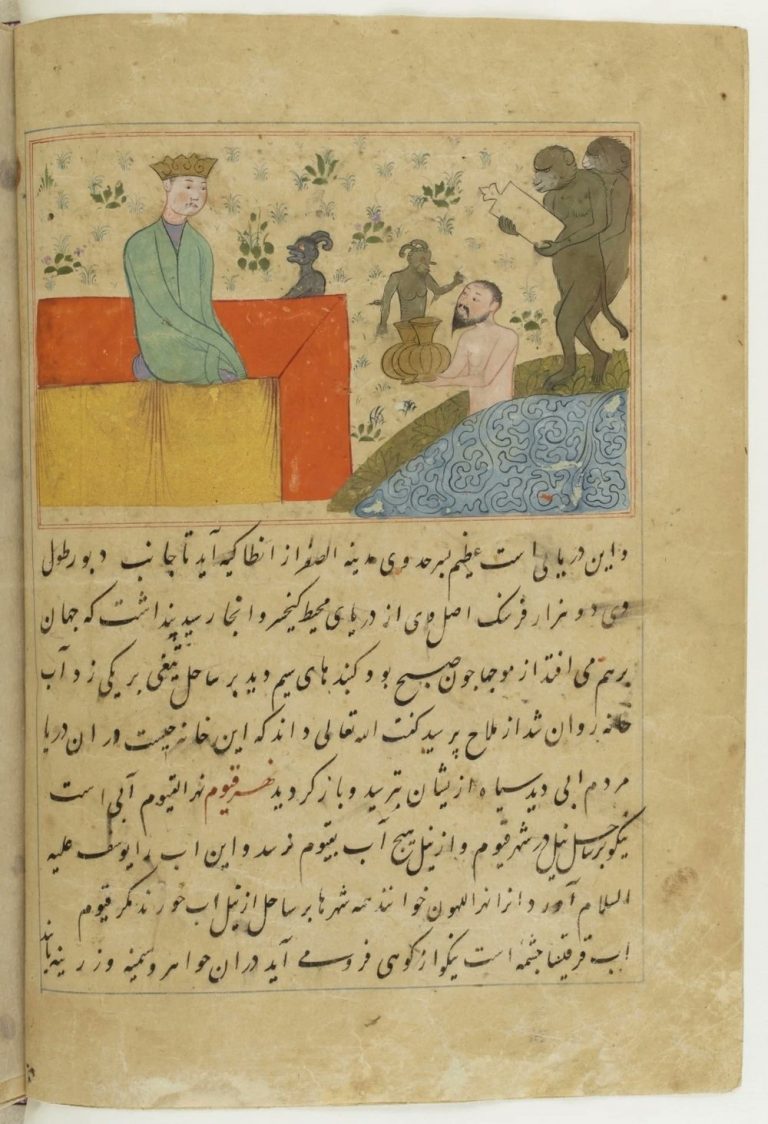 و این دریایی است عظیم بسرحد وی مدینه الصفر از انطاکیه آید تا جانب دبور طول
وی دو هزار فرسنک اصل وی از دریای محیط کیخسرو انجا رسید پنداشت که جهان
برهم می افتد از موجها جون صبح بود کنبدهای سیم دید بر ساحل تیغی بر یکی زد آب
خانه روان شد از ملاح پرسید کفت الله تعالی داند که این خانه جیست و در ان دریا
مردم ابی دید سیاه از یشان بترسید و باز کردید نهر قیوم نهر القیوم آبی است
نیکو بر ساحل نیل در شهر قیوم و از نیل هیج آب بقیوم نرسد و این اب را یوسف علیه
السلام آورد انرا نهر اللهون خوانند همه شهرها بر ساحل از نیل اب خورند مکر قیوم
اب جشمه است نیکو از کوهی فرو می آید در ان جواهر و سیمینه و زرینه یابند